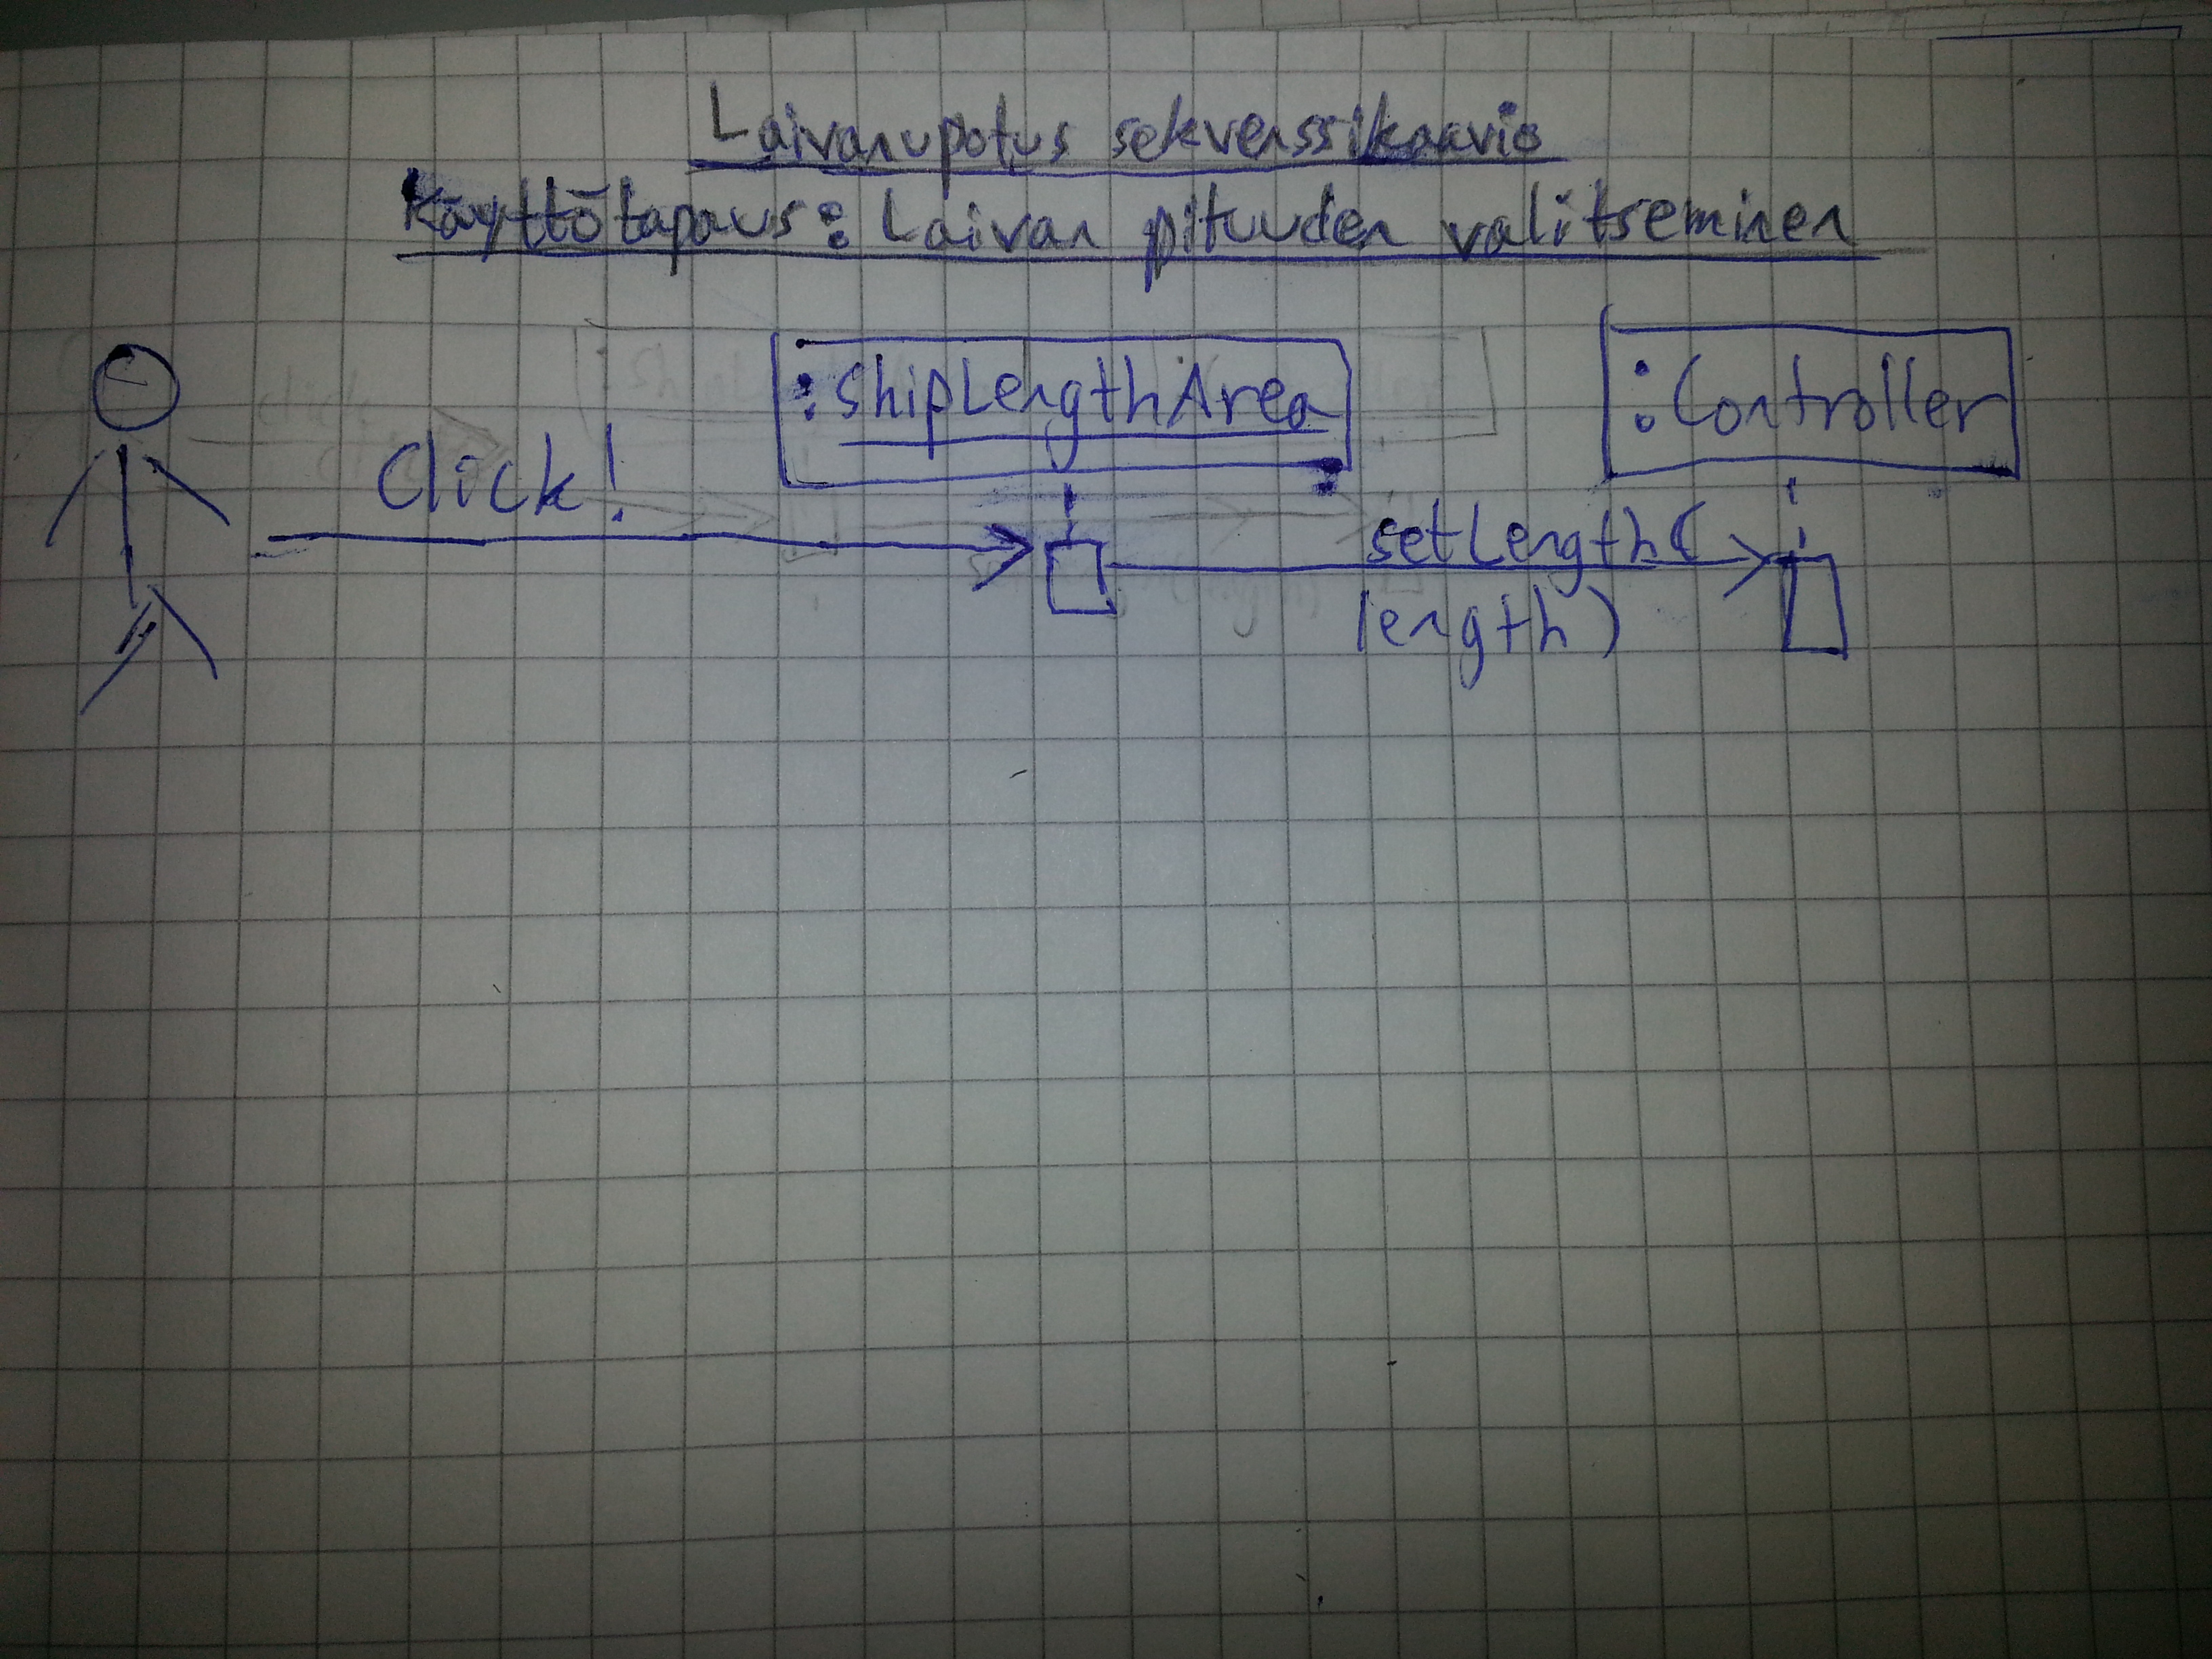 Laivanupotus sekvenssikaavio
Käyttötapaus: Laivan pituuden valitseminen
:ShipLengthArea
:Controller
Click!
setLength(
length)